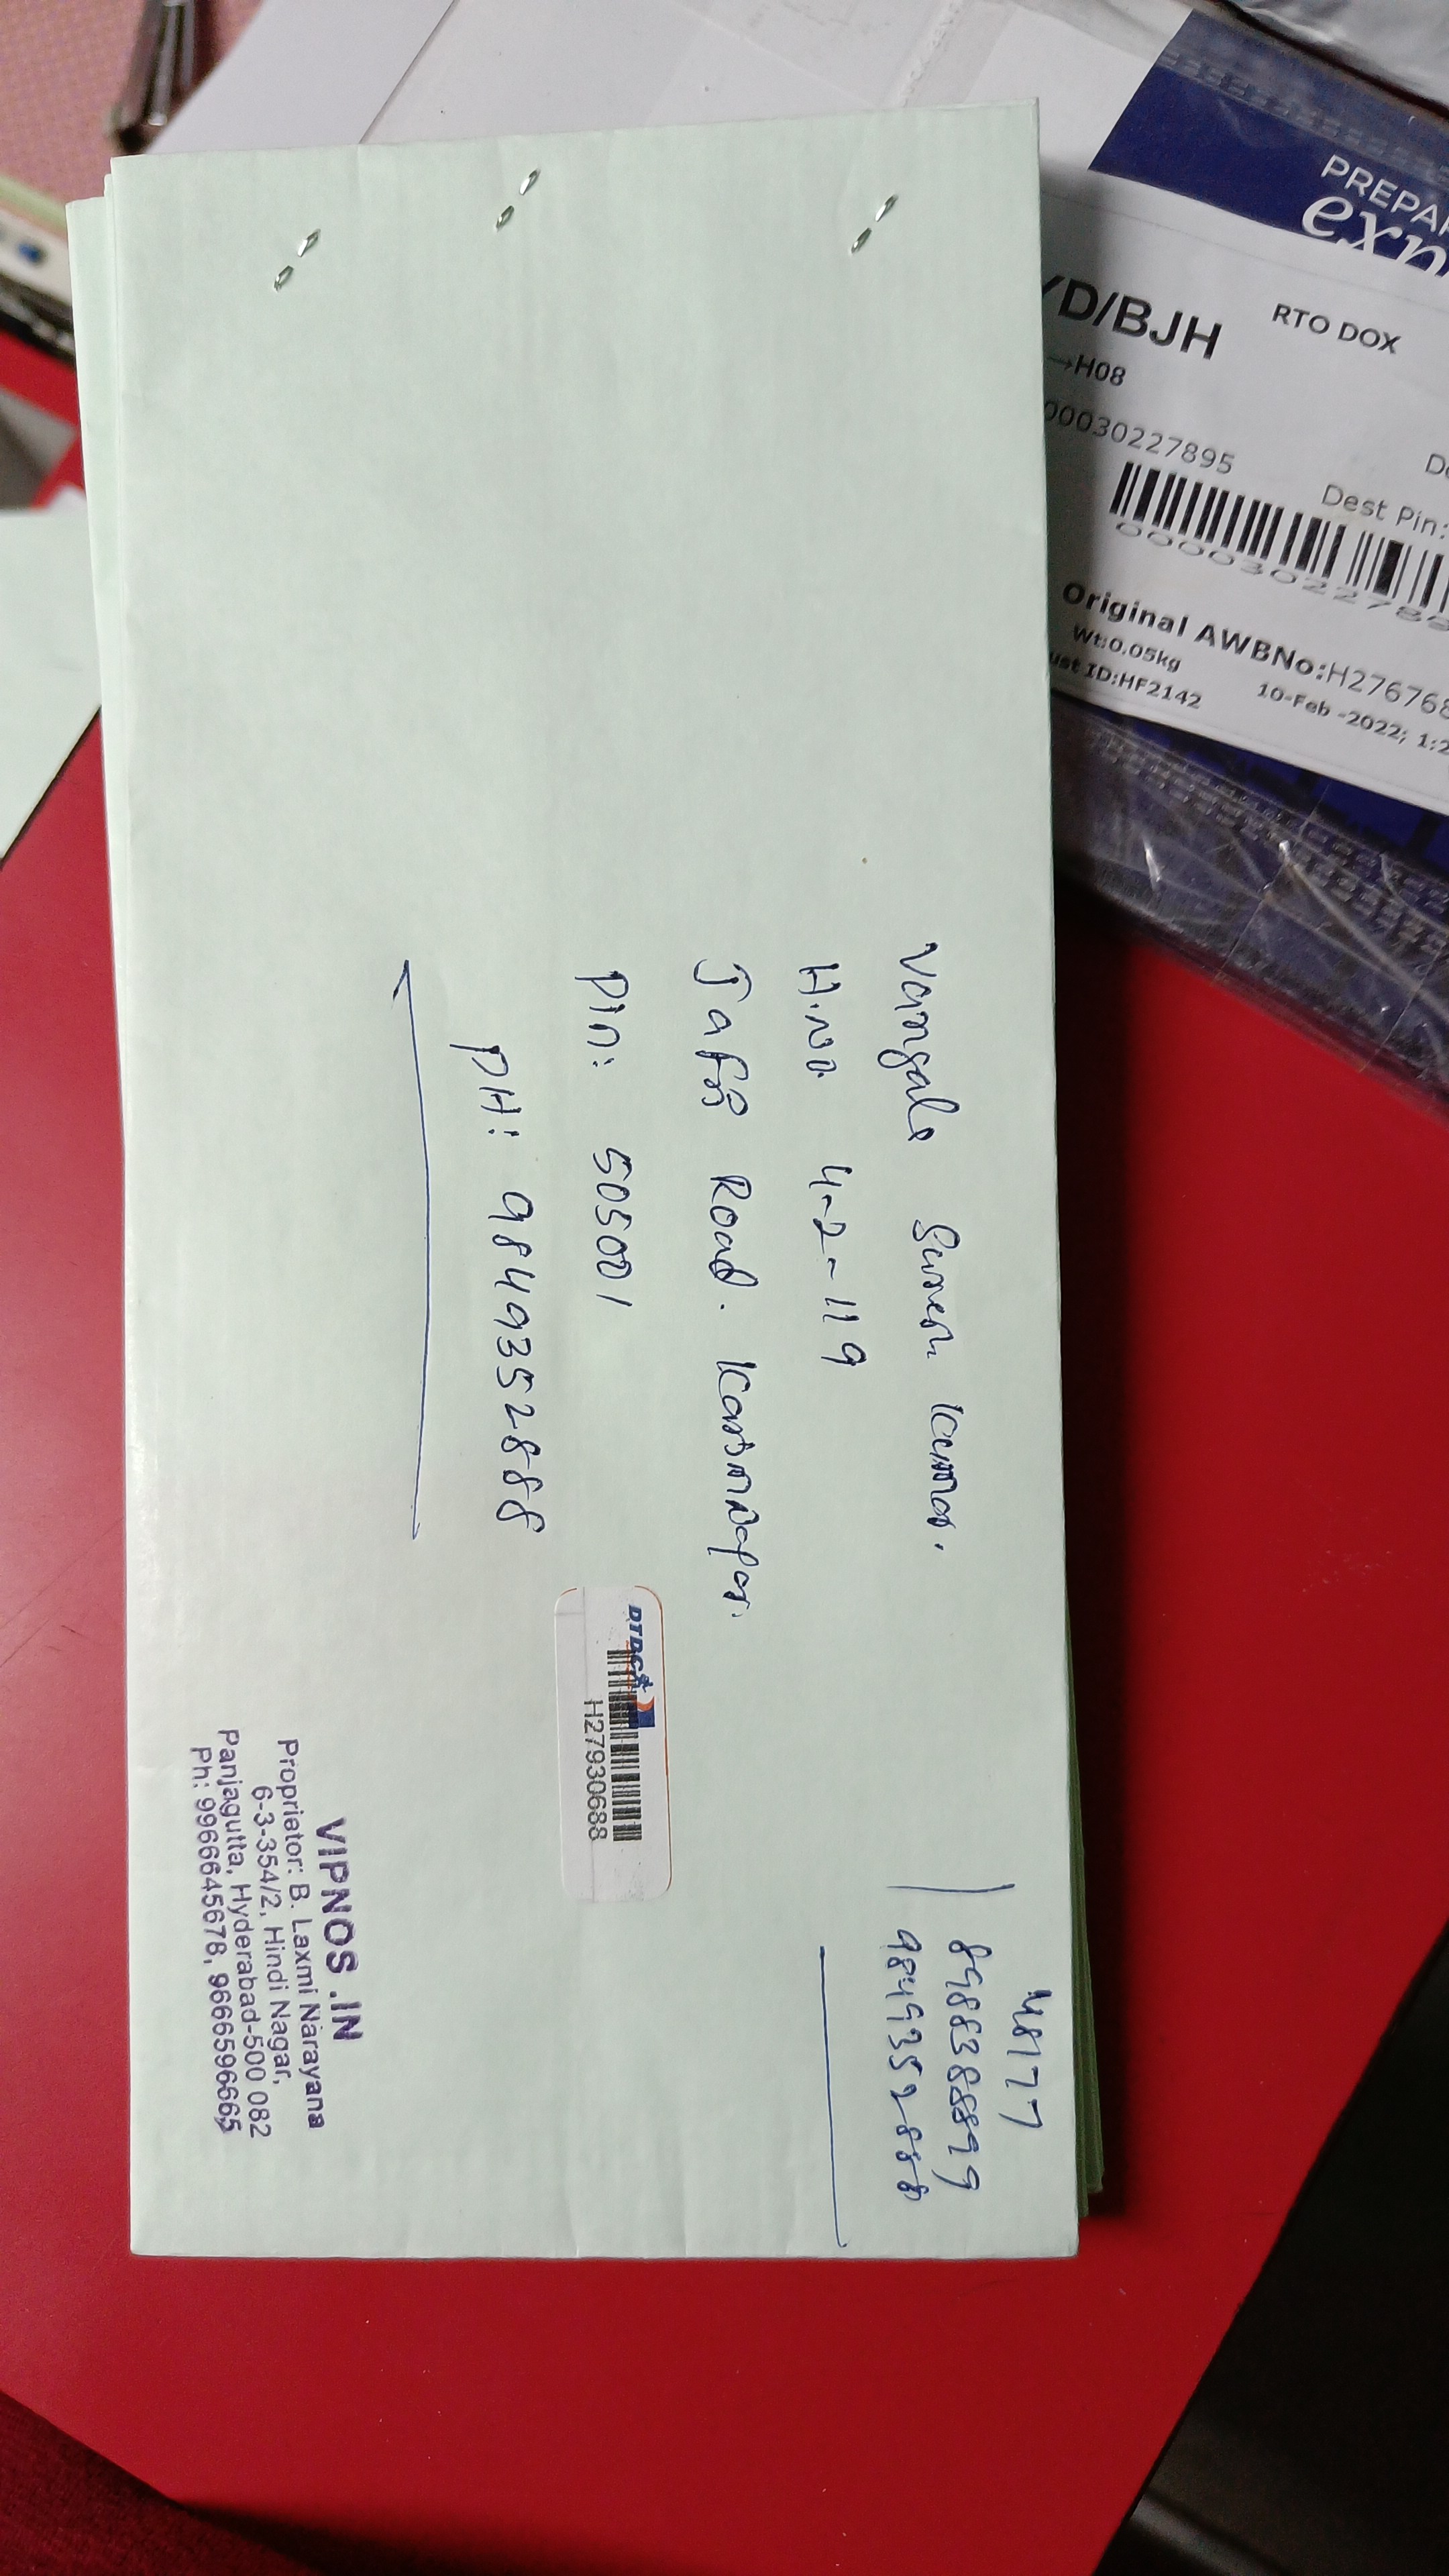 Vangala Suresh Kumar.
H.No. 4-2-119
Jafri Road. Karimnagar.
Pin: 505001
PH: 9849352888
48177
8988388899
9849352888
DTDC
H27930688
VIPNOS .IN
Proprietor: B. Laxmi Narayana
6-3-354/2, Hindi Nagar,
Panjagutta, Hyderabad-500 082
Ph: 9966645678, 9666596665
RTO DOX
/D/BJH
→H08
00030227895
Dest Pin:
Original AWBNo:H27676
Wt:0.05kg
ust ID:HF2142
10-Feb -2022; 1:2